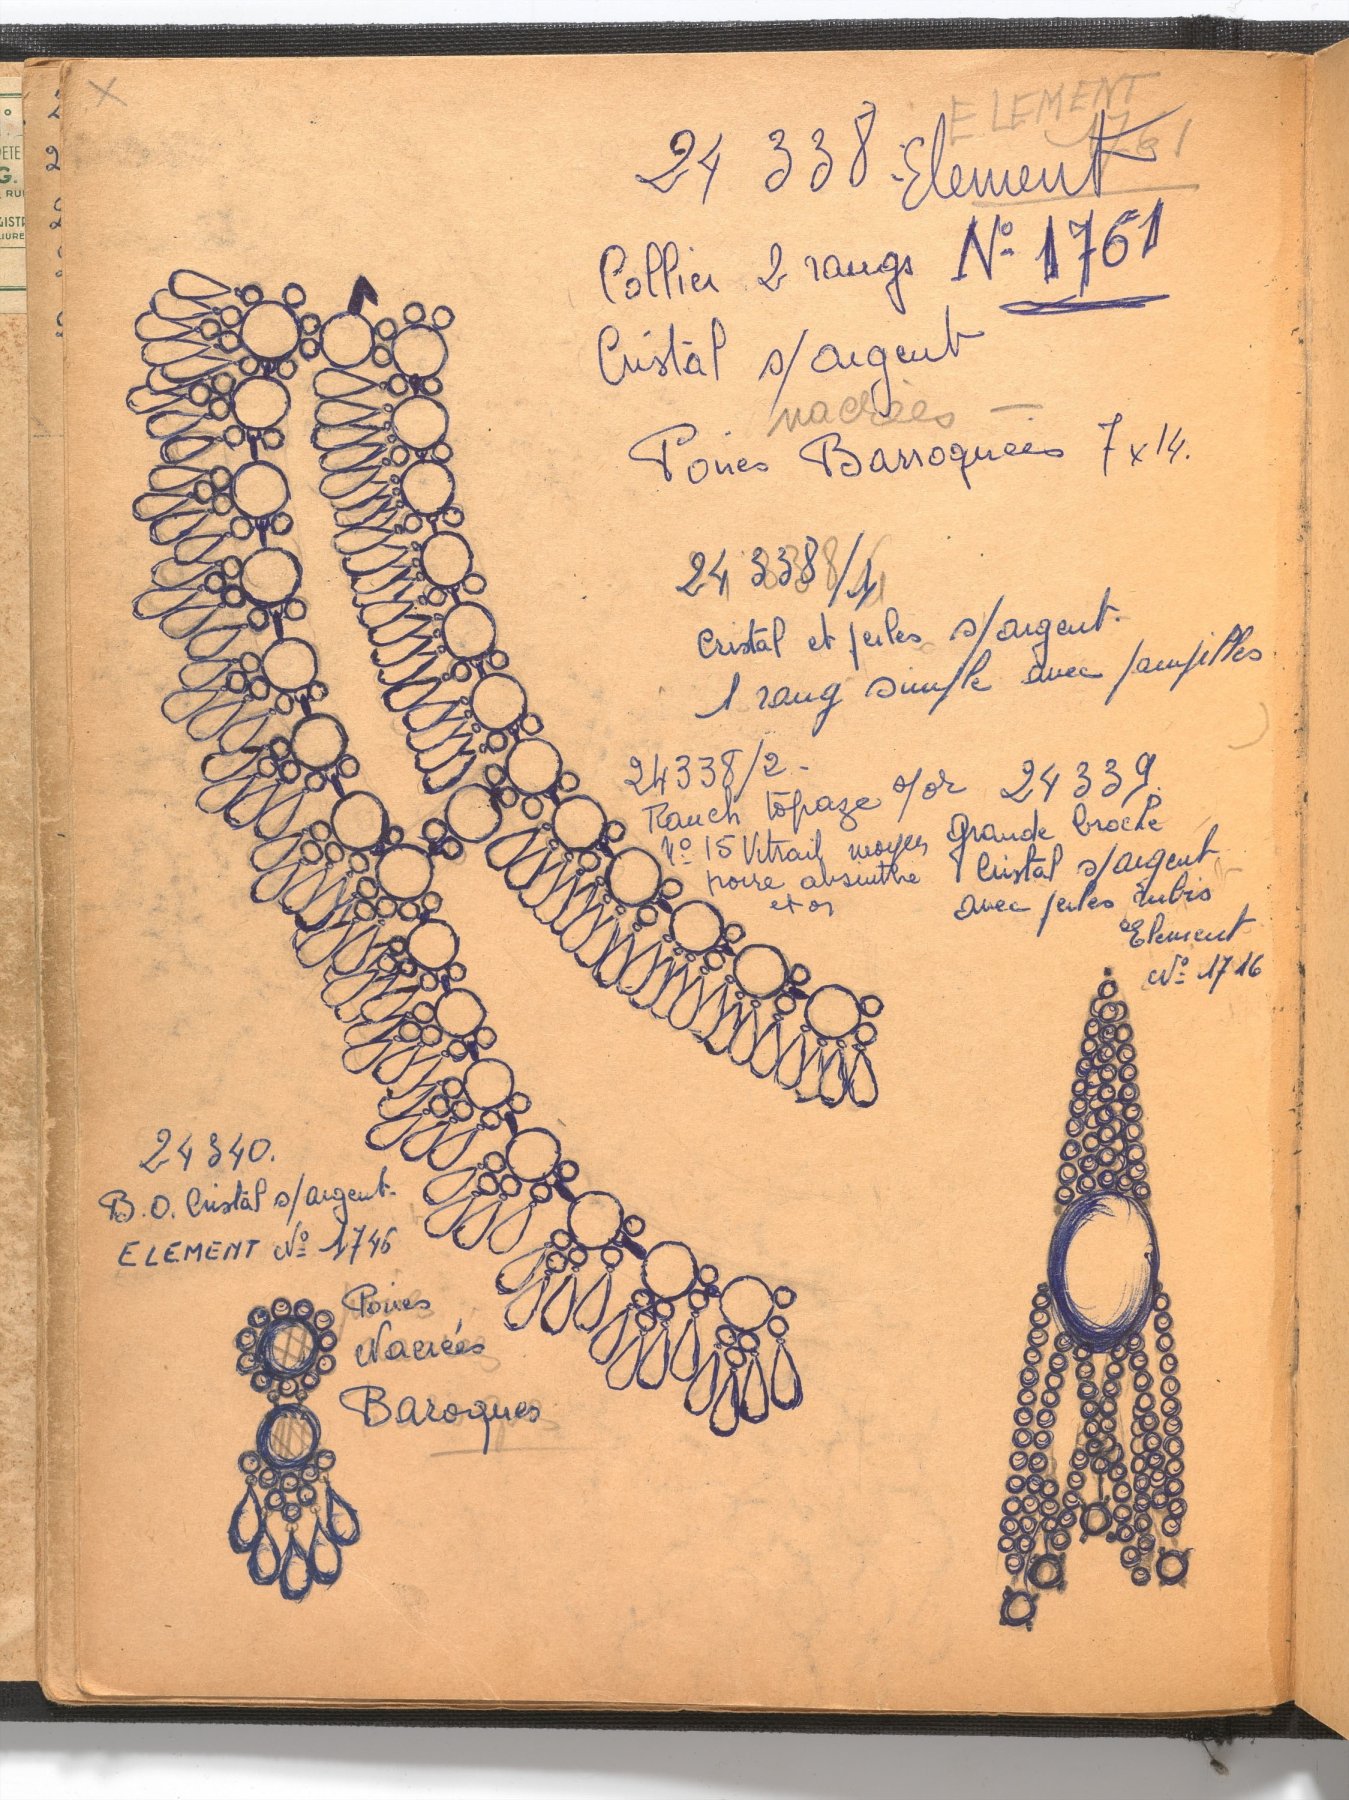 ELEMENT
1761
24 338 Element
Collier 2 rangs N° 1761
Cristal s/argent
nacrées
Poires Barroquées 7x14.
24 338/1
Cristal et perles s/argent.
1 rang simple avec pampilles
24338/2.
topaze s/or
N° 15 Vitrail moyen
poire absinthe
et or
24 339.
Grande broche
Cristal s/argent
avec perles rubis
Element
N° 1716
24 340.
B.O. Cristal s/argent.
ELEMENT N° 1746
Poires
Nacrées
Baroques